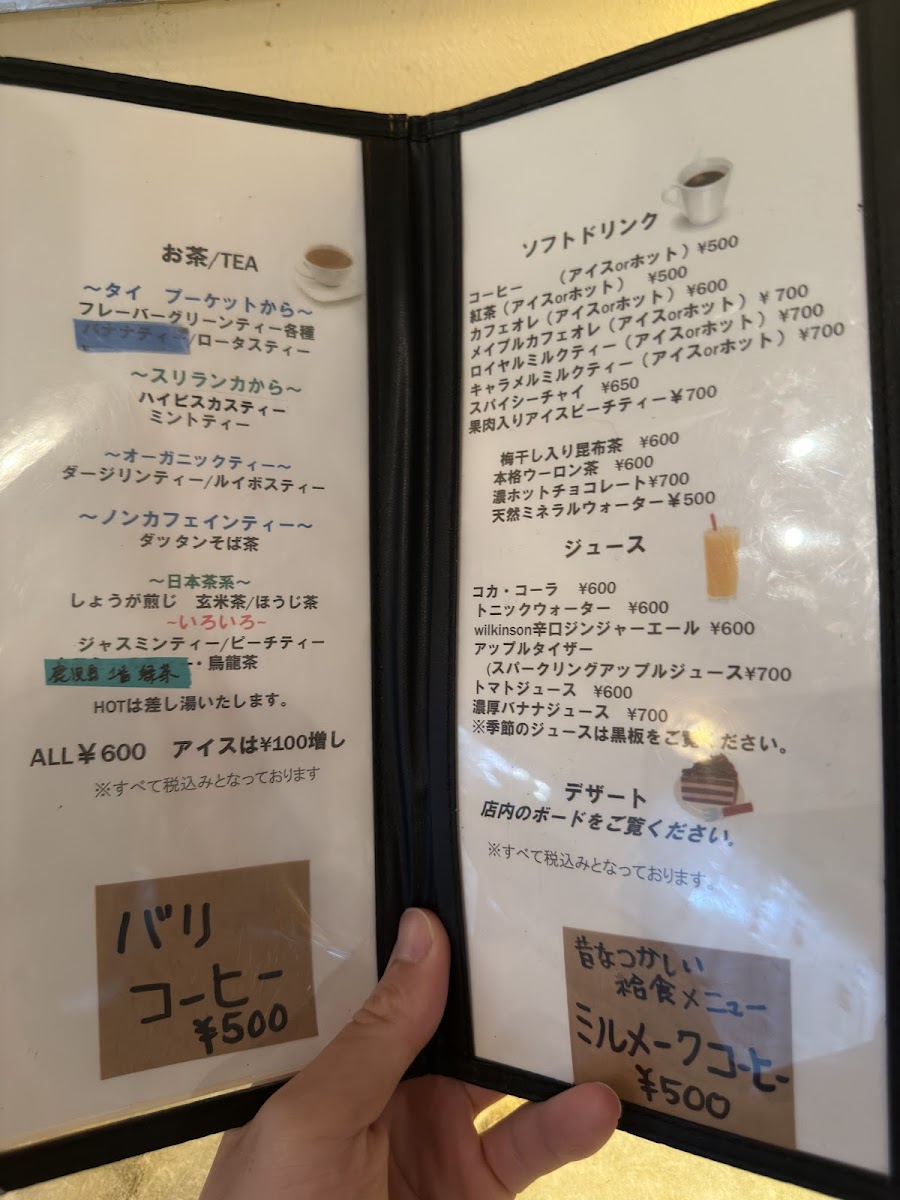 お茶/TEA
～タイ　プーケットから～
フレーバーグリーンティー各種
バナナティー/ロータスティー
～スリランカから～
ハイビスカスティー
ミントティー
～オーガニックティー～
ダージリンティー/ルイボスティー
～ノンカフェインティー～
ダッタンそば茶
～日本茶系～
しょうが煎じ　玄米茶/ほうじ茶
~いろいろ~
ジャスミンティー/ピーチティー
鹿児島 緑茶・烏龍茶
HOTは差し湯いたします。
ALL￥600　アイスは¥100増し
※すべて税込みとなっております
バリ
コーヒー
¥500
ソフトドリンク
コーヒー　　（アイスorホット）¥500
紅茶（アイスorホット）　¥500
カフェオレ（アイスorホット）¥600
メイプルカフェオレ（アイスorホット）￥700
ロイヤルミルクティー（アイスorホット）¥700
キャラメルミルクティー（アイスorホット）¥700
スパイシーチャイ　¥650
果肉入りアイスピーチティー￥700
梅干し入り昆布茶　¥600
本格ウーロン茶　¥600
濃ホットチョコレート¥700
天然ミネラルウォーター￥500
ジュース
コカ・コーラ　¥600
トニックウォーター　¥600
wilkinson辛口ジンジャーエール ¥600
アップルタイザー
（スパークリングアップルジュース¥700
トマトジュース　¥600
濃厚バナナジュース　¥700
※季節のジュースは黒板をご覧ください。
デザート
店内のボードをご覧ください。
※すべて税込みとなっております。
昔なつかしい
給食メニュー
ミルメークコーヒー
¥500